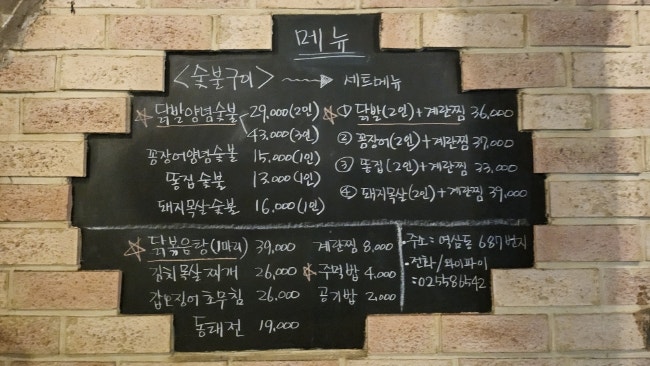 메뉴
<숯불구이> → 세트메뉴
☆ 닭발양념숯불 29,000 (2인)
43,000 (3인)
꼼장어양념숯불 15,000 (1인)
똥집숯불 13,000 (1인)
돼지목살숯불 16,000 (1인)
☆ ① 닭발(2인)+계란찜 36,000
② 꼼장어(2인)+계란찜 37,000
③ 똥집(2인)+계란찜 33,000
④ 돼지목살(2인)+계란찜 39,000
☆ 닭볶음탕(1마리) 39,000
김치목살찌개 26,000
갑오징어초무침 26,000
동태전 19,000
계란찜 8,000
☆ 주먹밥 4,000
공기밥 2,000
·주소= 역삼동 687번지
·전화/와이파이
=025586542